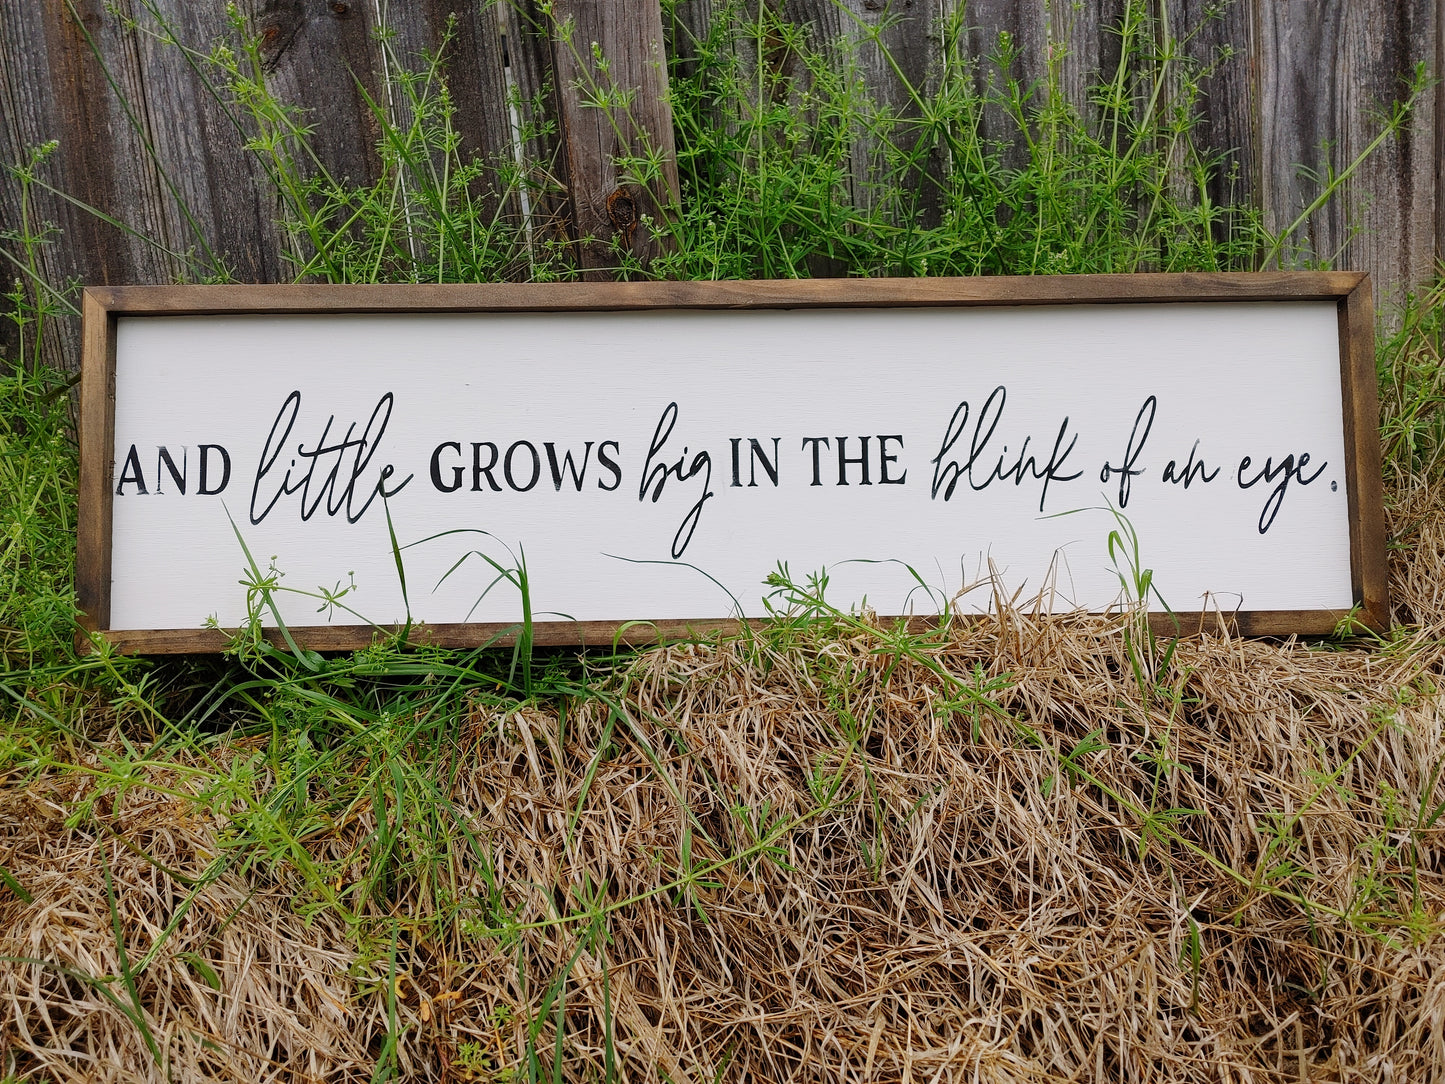 AND little GROWS big IN THE blink of an eye.